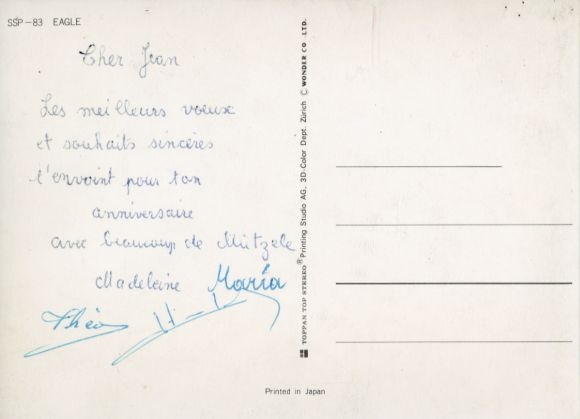 SSP-83 EAGLE
Cher Jean
Les meilleurs voeux
et souhaits sincères
t'envoint pour ton
anniversaire
avec beaucoup de Mützele
Madeleine Maria
Théo
TOPPAN TOP STEREO® Printing Studio AG. 3D-Color Dept. Zürich © WONDER CO. LTD.
Printed in Japan